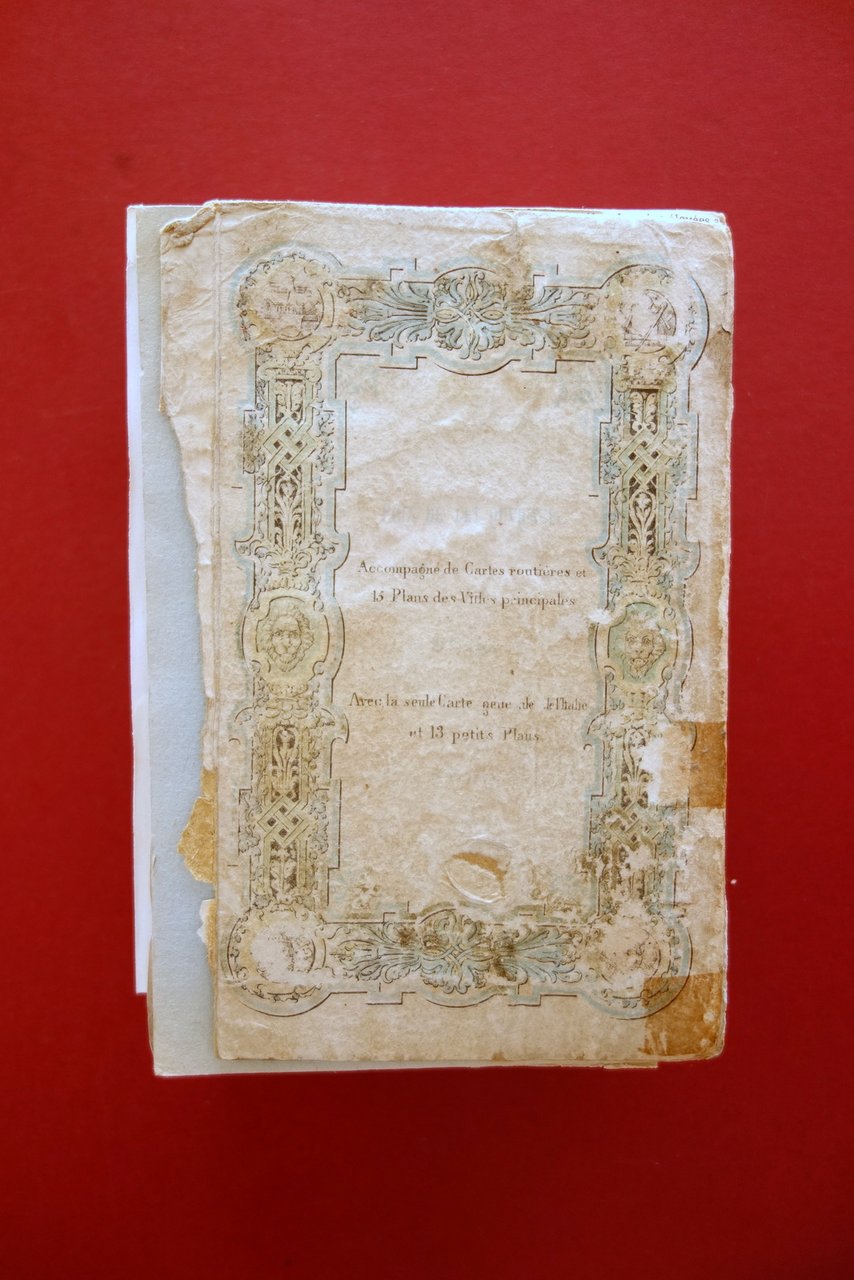 Accompagné de Cartes routières et
15 Plans des Villes principales
Avec la seule Carte gene de de l'Italie
et 13 petits Plans.